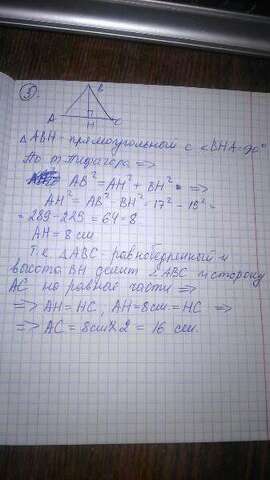 3).
B
A
H
C
△ABH - прямоугольной с ∠BHA=90°
По т. Пифагора =>
AB² = AH² + BH² =>
AH² = AB² - BH² = 17² - 15² =
= 289 - 225 = 64 = 8
AH = 8 см
Т.к. △ABC - равнобедренный и
высота BH делит ∠ABC и сторону
AC на равной части =>
=> AH = HC, AH = 8см = HC =>
=> AC = 8см × 2 = 16 см.